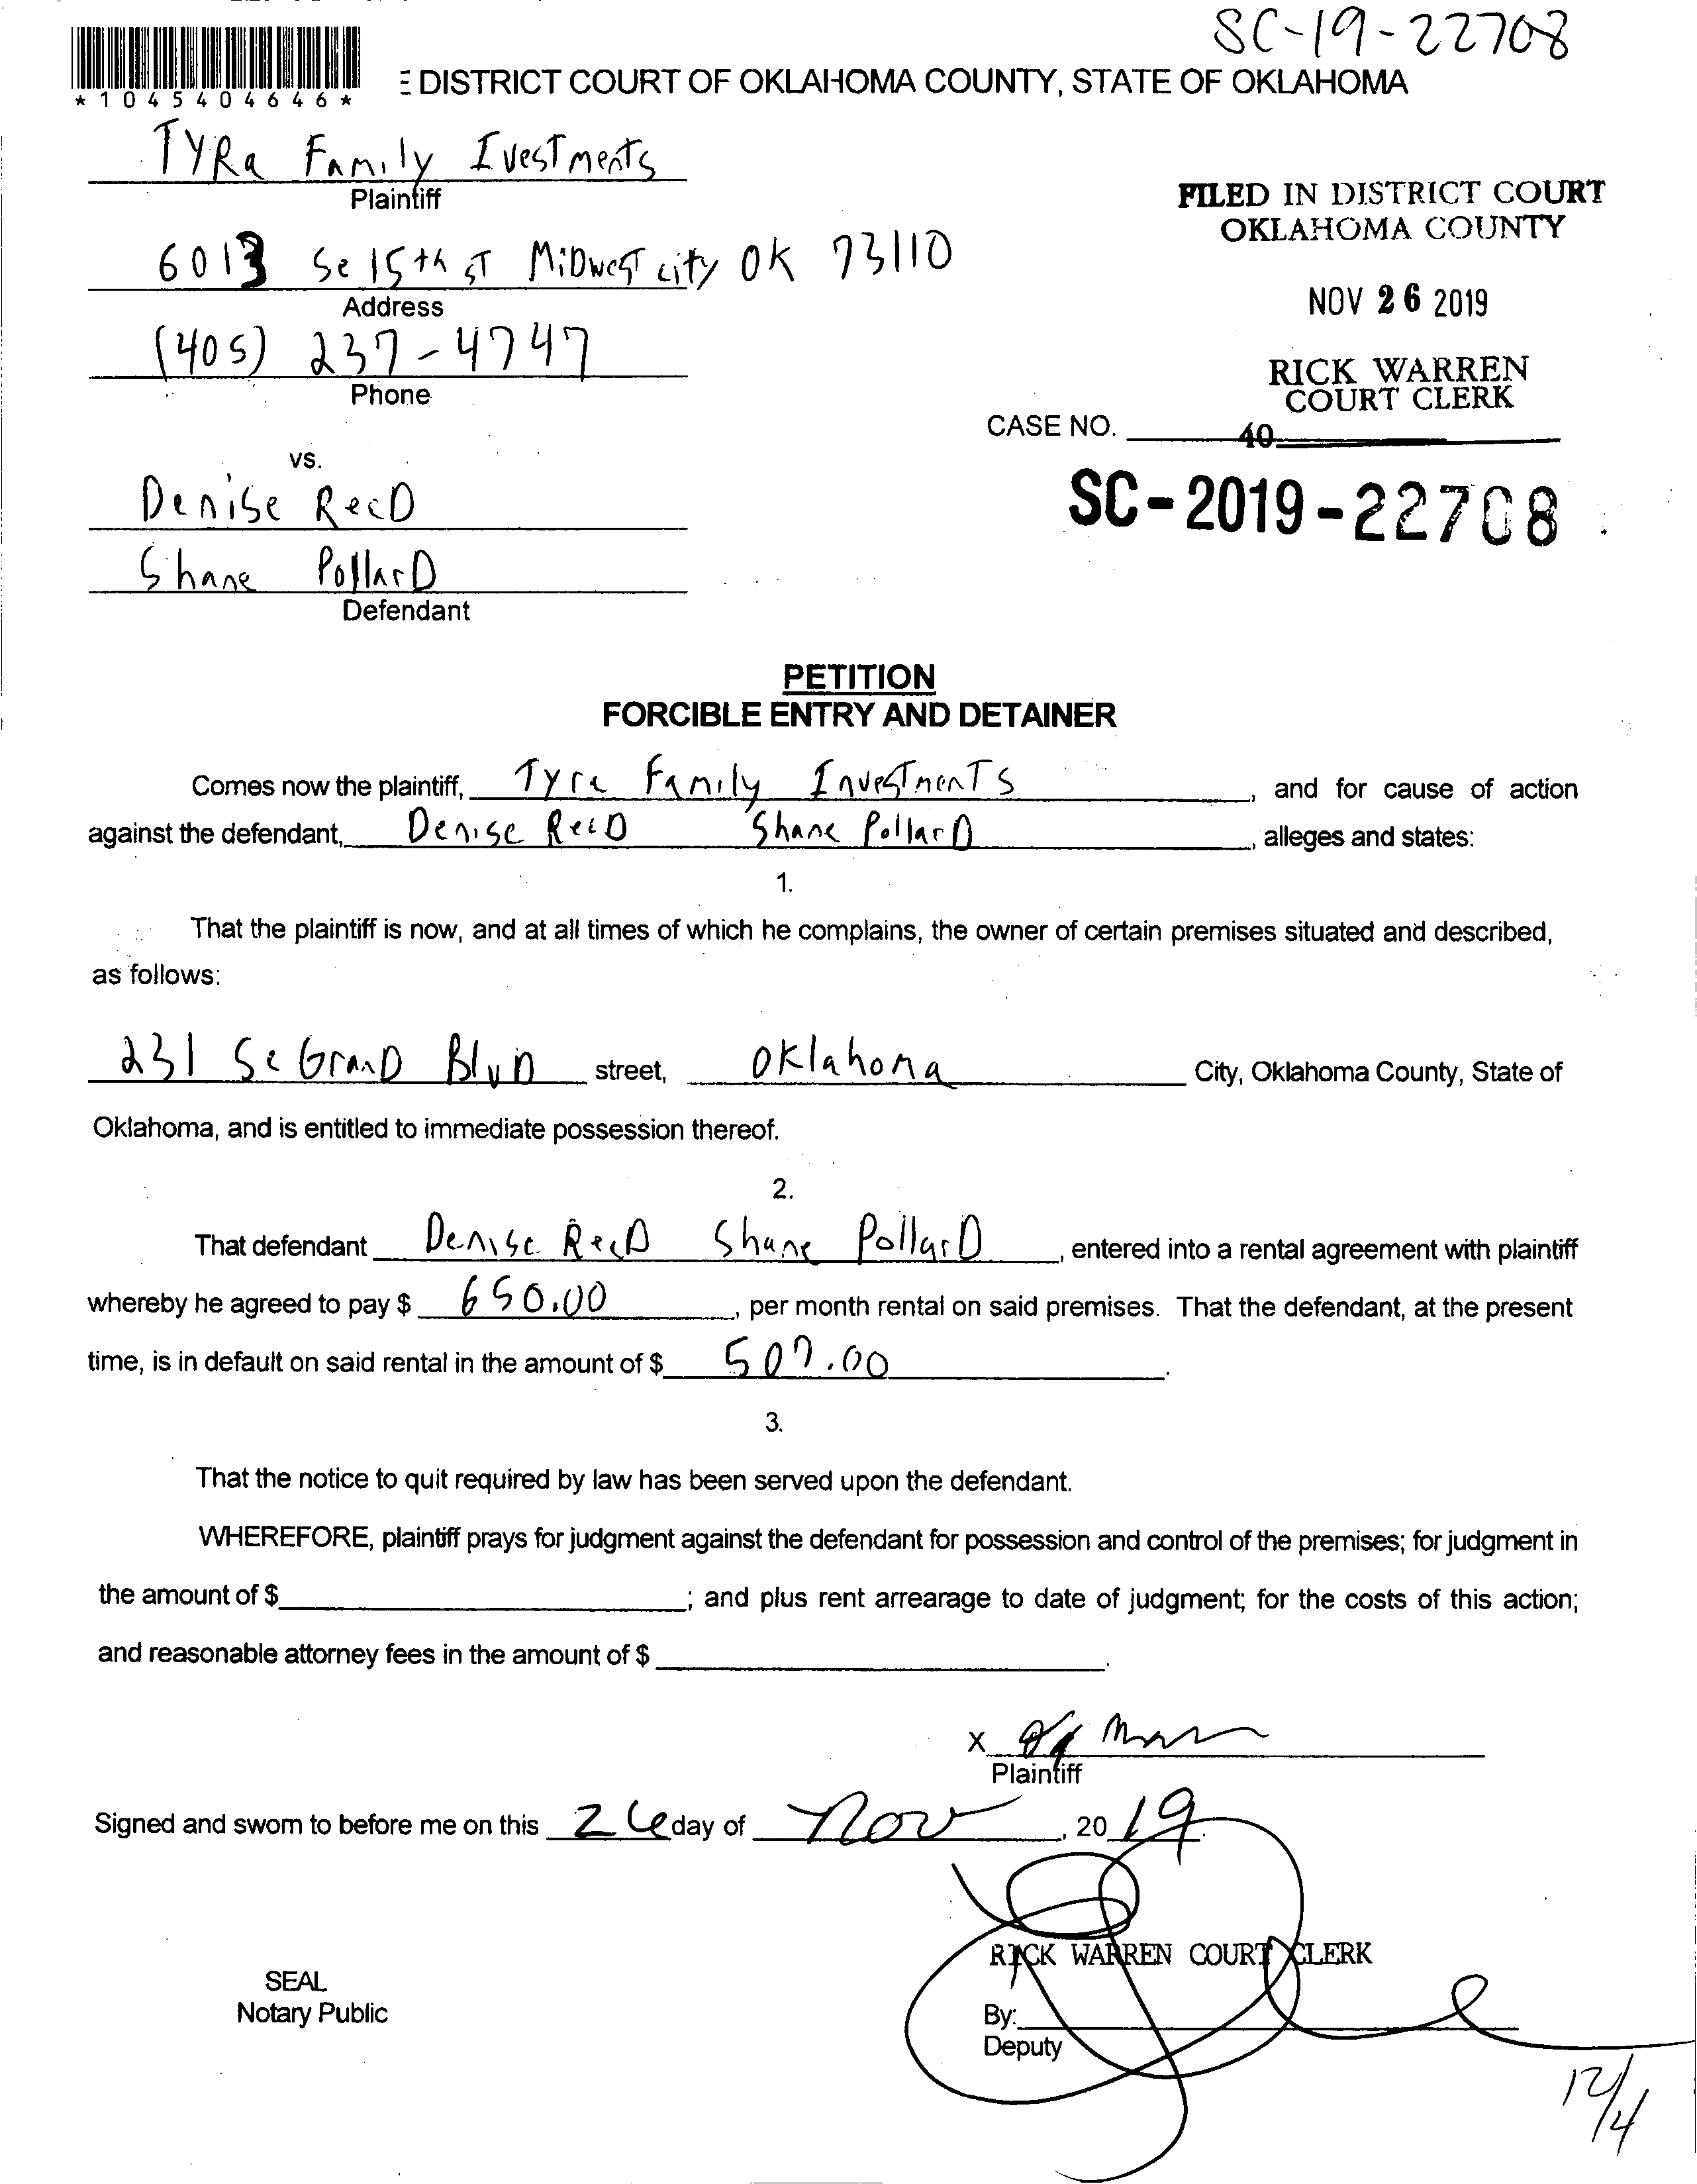 SC-19-22708
*1045404646*
DISTRICT COURT OF OKLAHOMA COUNTY, STATE OF OKLAHOMA
TYRa Family Ivestments
Plaintiff
6013 Se 15th ST MiDwest city OK 73110
Address
(405) 237-4747
Phone
FILED IN DISTRICT COURT
OKLAHOMA COUNTY
NOV 26 2019
RICK WARREN
COURT CLERK
CASE NO. 40
SC-2019-22708
vs.
Denise ReeD
Shane PollarD
Defendant
PETITION
FORCIBLE ENTRY AND DETAINER
Comes now the plaintiff, Tyra Family Investments, and for cause of action
against the defendant, Denise ReeD Shane PollarD, alleges and states:
1.
That the plaintiff is now, and at all times of which he complains, the owner of certain premises situated and described,
as follows:
231 Se GranD BlvD street, Oklahoma City, Oklahoma County, State of
Oklahoma, and is entitled to immediate possession thereof.
2.
That defendant Denise ReeD Shane PollarD, entered into a rental agreement with plaintiff
whereby he agreed to pay $ 650.00, per month rental on said premises. That the defendant, at the present
time, is in default on said rental in the amount of $ 507.00.
3.
That the notice to quit required by law has been served upon the defendant.
WHEREFORE, plaintiff prays for judgment against the defendant for possession and control of the premises; for judgment in
the amount of $; and plus rent arrearage to date of judgment; for the costs of this action;
and reasonable attorney fees in the amount of $.
X
Plaintiff
Signed and sworn to before me on this 26 day of Nov, 2019.
RICK WARREN COURT CLERK
SEAL
Notary Public
By:
Deputy
12/4